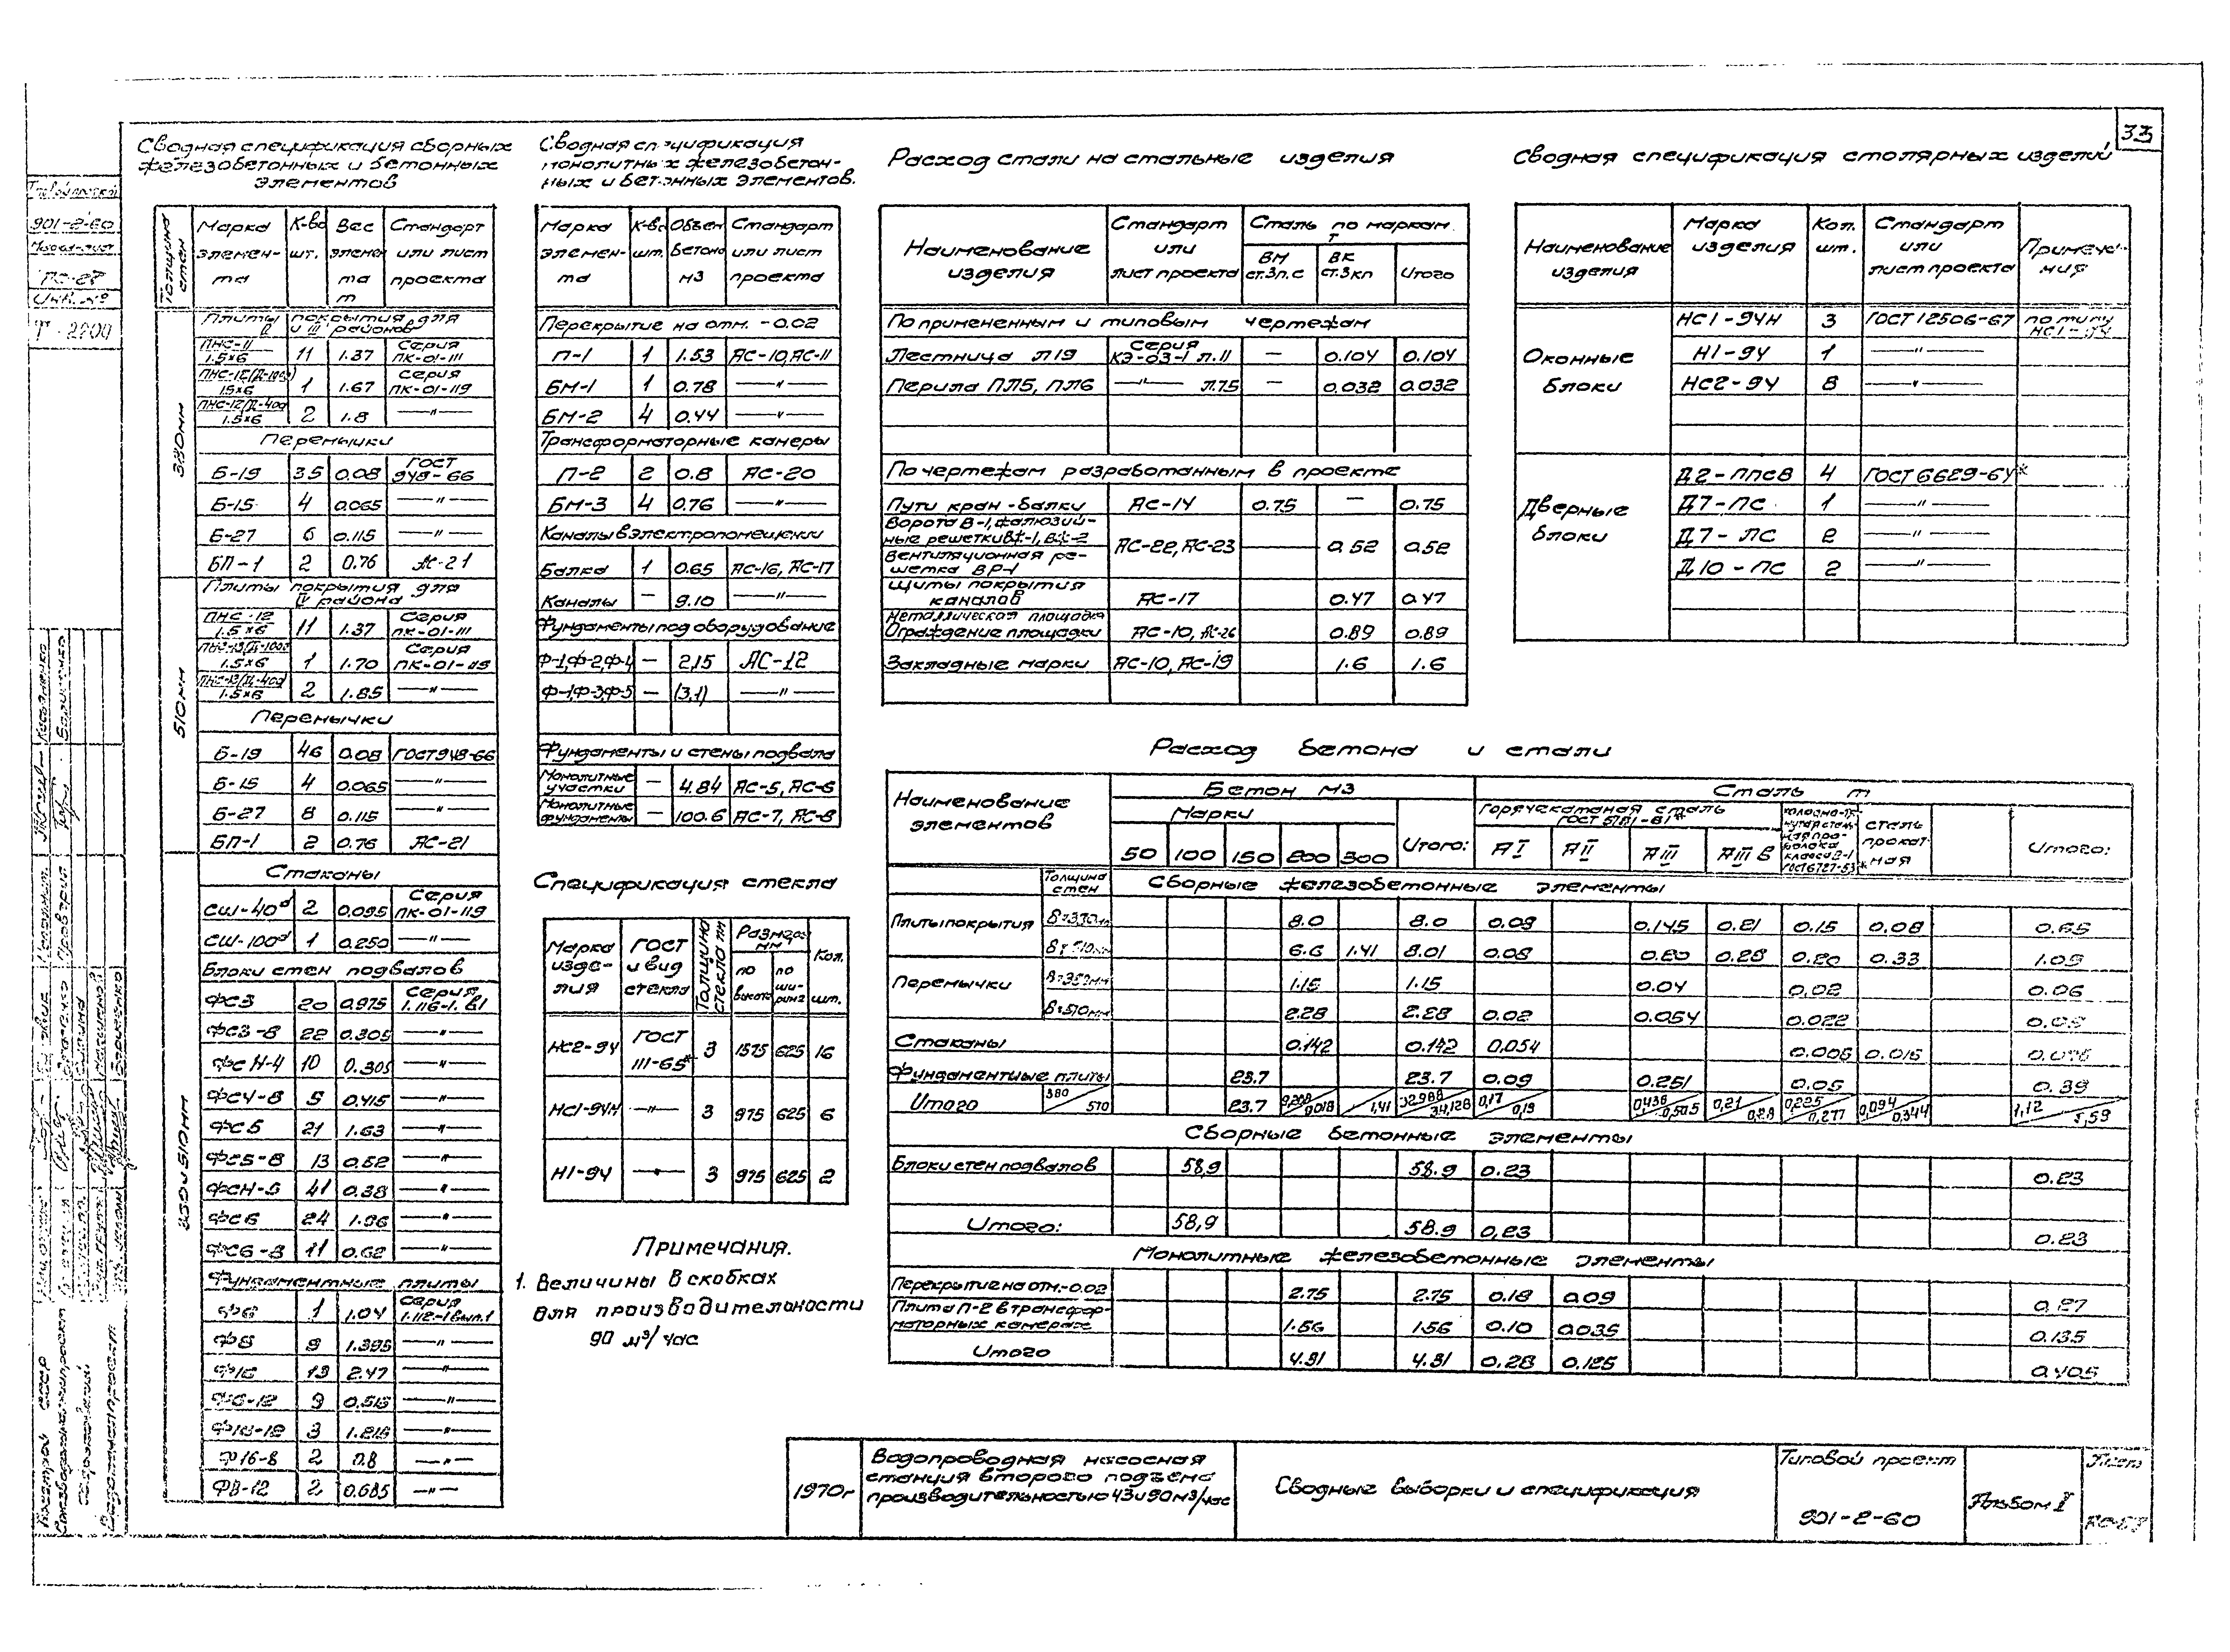 33
Сводная спецификация сборных
железобетонных и бетонных
элементов
Толщина стен
Марка элемен-та
К-во шт.
Вес элемен та т
Стандарт или лист проекта
380мм
Плиты покрытия для
II и III районов
ПНС-11 1.5×6 11 1.37 Серия ПК-01-111
1.5×6 1 1.67 Серия ПК-01-119
1.5×6 2 1.8 —"—
Перемычки
Б-19 35 0.08 ГОСТ 948-66
Б-15 4 0.065 —"—
Б-27 6 0.115 —"—
БП-1 2 0.76 АС-21
510мм
Плиты покрытия для
IV района
ПНС-12 1.5×6 11 1.37 Серия ПК-01-111
1.5×6 1 1.70 Серия ПК-01-119
1.5×6 2 1.85 —"—
Перемычки
Б-19 46 0.08 ГОСТ948-66
Б-15 4 0.065 —"—
Б-27 8 0.115 —"—
БП-1 2 0.76 АС-21
Стаканы
СШ-40 2 0.095 Серия ПК-01-119
СШ-100 1 0.250 —"—
Блоки стен подвалов
ФС3 20 0.975 Серия 1.116-1. В1
ФС3-8 22 0.305 —"—
ФСН-4 10 0.305 —"—
ФС4-8 5 0.415 —"—
ФС5 21 1.63 —"—
ФС5-8 13 0.52 —"—
ФСН-5 41 0.38 —"—
ФС6 24 1.96 —"—
ФС6-8 11 0.62 —"—
Фундаментные плиты
Ф6 1 1.04 Серия 1.112-1 вып.1
Ф8 9 1.395 —"—
2.47 —"—
9 0.516 —"—
3 1.215 —"—
Ф16-8 2 0.8 —"—
Ф8-12 2 0.685 —"—
Сводная спецификация
монолитных железобетон-
ных и бетонных элементов.
Марка элемен-та
К-во шт.
Объем бетона м3
Стандарт или лист проекта
Перекрытие на отм. -0.02
П-1 1 1.53 АС-10, АС-11
БМ-1 1 0.78 —"—
БМ-2 4 0.44 —"—
Трансформаторные камеры
П-2 2 0.8 АС-20
БМ-3 4 0.76 —"—
Каналы в электропомещении
Балка 1 0.65 АС-16, АС-17
Каналы — 9.10 —"—
Фундаменты под оборудование
Ф-1,Ф-2,Ф-4 — 2,15 АС-12
Ф-1,Ф-3,Ф-5 — (3,1) —"—
Фундаменты и стены подвала
Монолитные участки — 4.84 АС-5, АС-6
Монолитные фундаменты — 100.6 АС-7, АС-8
Спецификация стекла
Марка изде-лия
ГОСТ и вид стекла
Толщина стекла мм
Размеры мм
по высоте
по ши-рине
Кол. шт.
НС2-94 ГОСТ 111-65* 3 1575 625 16
НС1-94Н —"— 3 975 625 6
Н1-94 —"— 3 975 625 2
Примечания.
1. Величины в скобках
для производительности
90 м³/час
Расход стали на стальные изделия
Наименование изделия
Стандарт или лист проекта
Сталь по маркам т
ВМ ст.3п.с
ВК ст.3кп
Итого
По примененным и типовым чертежам
Лестница Л19 Серия КЭ-03-1 л.11 — 0.104 0.104
Перила ПЛ5, ПЛ6 —"— л.75 — 0.032 0.032
По чертежам разработанным в проекте
Пути кран-балки АС-14 0.75 — 0.75
Ворота В-1, жалюзий-
ные решетки ВЖ-1, ВЖ-2
Вентиляционная ре-
шетка ВР-1 АС-22, АС-23 — 0.52 0.52
Щиты покрытия
каналов АС-17 0.47 0.47
Металлическая площадка
Ограждение площадки АС-10, АС-26 0.89 0.89
Закладные марки АС-10, АС-19 1.6 1.6
Сводная спецификация столярных изделий
Наименование изделия
Марка изделия
Кол. шт.
Стандарт или лист проекта
Примеча-ния
Оконные блоки
НС1-94Н 3 ГОСТ 12506-67 по типу НС1-94
Н1-94 1 —"—
НС2-94 8 —"—
Дверные блоки
Д2-ППСВ 4 ГОСТ 6629-64*
Д7-ПС 1 —"—
Д7-ЛС 2 —"—
Д10-ПС 2 —"—
Расход бетона и стали
Наименование элементов
Бетон м3
Марки
50 100 150 200 300
Итого:
Сталь т
Горячекатаная сталь
АI АII АIII АIIIВ
сталь прокат-ная
Итого:
Толщина стен
Сборные железобетонные элементы
Плиты покрытия 8.0 8.0 0.09 0.145 0.21 0.15 0.08 0.65
6.6 1.41 8.01 0.08 0.20 0.28 0.20 0.33 1.09
Перемычки 1.15 1.15 0.04 0.02 0.06
В=510мм 2.28 2.28 0.02 0.054 0.022
Стаканы 0.142 0.142 0.054 0.006 0.016
Фундаментные плиты 23.7 23.7 0.09 0.251 0.05 0.39
Итого 380/510 23.7 1,41 32.988/34,128 0,17/0,19 0,436/0,505 0,21/0,28 0,225/0,277 0,094/0,344 1,12/1,59
Сборные бетонные элементы
Блоки стен подвалов 58,9 58.9 0.23 0.23
Итого: 58,9 58.9 0,23 0.23
Монолитные железобетонные элементы
Перекрытие на отм.-0.02 2.75 2.75 0.18 0.09 0.27
Плита П-2 в трансфор-
маторных камерах 1.56 1.56 0.10 0.035 0.135
Итого 4.31 4.31 0.28 0.125 0.405
1970г
Водопроводная насосная
станция второго подъема
производительностью 43и90м³/час
Сводные выборки и спецификация
Типовой проект
901-2-60
Альбом II
Лист
901-2-60
Инв. №
Т-2200